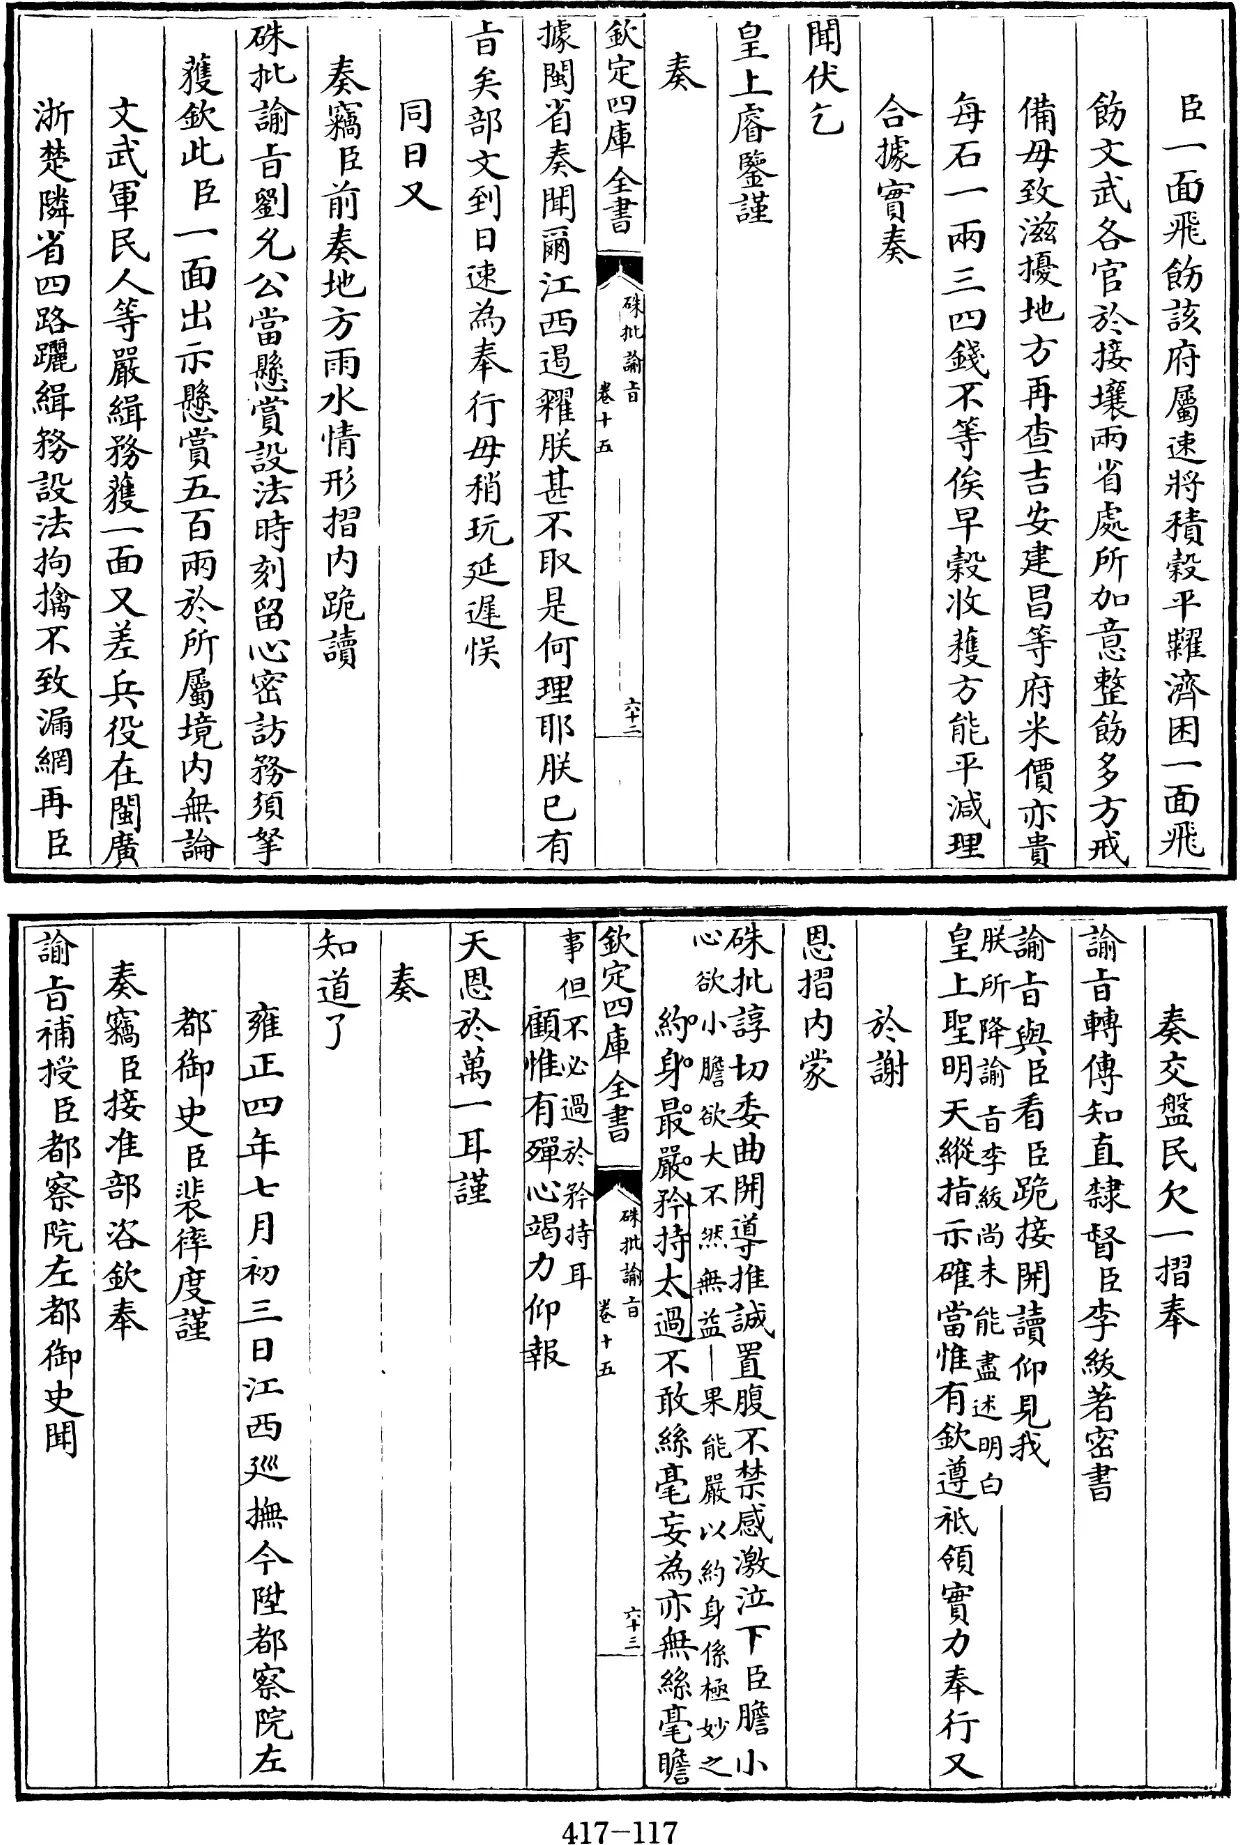 臣一面飛飭該府屬速將積穀平糶濟困一面飛
飭文武各官於接壤兩省處所加意整飭多方戒
備毋致滋擾地方再查吉安建昌等府米價亦貴
每石一兩三四錢不等俟早穀收穫方能平減理
合據實奏
聞伏乞
皇上睿鑒謹
奏
欽定四庫全書
硃批諭旨
卷十五
六十二
據閩省奏聞爾江西遏糴朕甚不取是何理耶朕已有
旨矣部文到日速為奉行毋稍玩延遲悞
同日又
奏竊臣前奏地方雨水情形摺內跪讀
硃批諭旨劉允公當懸賞設法時刻留心密訪務須拏
獲欽此臣一面出示懸賞五百兩於所屬境內無論
文武軍民人等嚴緝務獲一面又差兵役在閩廣
浙楚隣省四路躧緝務設法拘擒不致漏網再臣
奏交盤民欠一摺奉
諭旨轉傳知直隸督臣李紱著密書
諭旨與臣看臣跪接開讀仰見我
朕所降諭旨李紱尚未能盡述明白
皇上聖明天縱指示確當惟有欽遵祇領實力奉行又
於謝
恩摺內蒙
硃批諄切委曲開導推誠置腹不禁感激泣下臣膽小
心欲小膽欲大不然無益果能嚴以約身係極妙之
約身最嚴矜持太過不敢絲毫妄為亦無絲毫瞻
欽定四庫全書
硃批諭旨
卷十五
六十三
事但不必過於矜持耳
顧惟有殫心竭力仰報
天恩於萬一耳謹
奏
知道了
雍正四年七月初三日江西廵撫今陞都察院左
都御史臣裴𢕋度謹
奏竊臣接准部咨欽奉
諭旨補授臣都察院左都御史聞
417-117